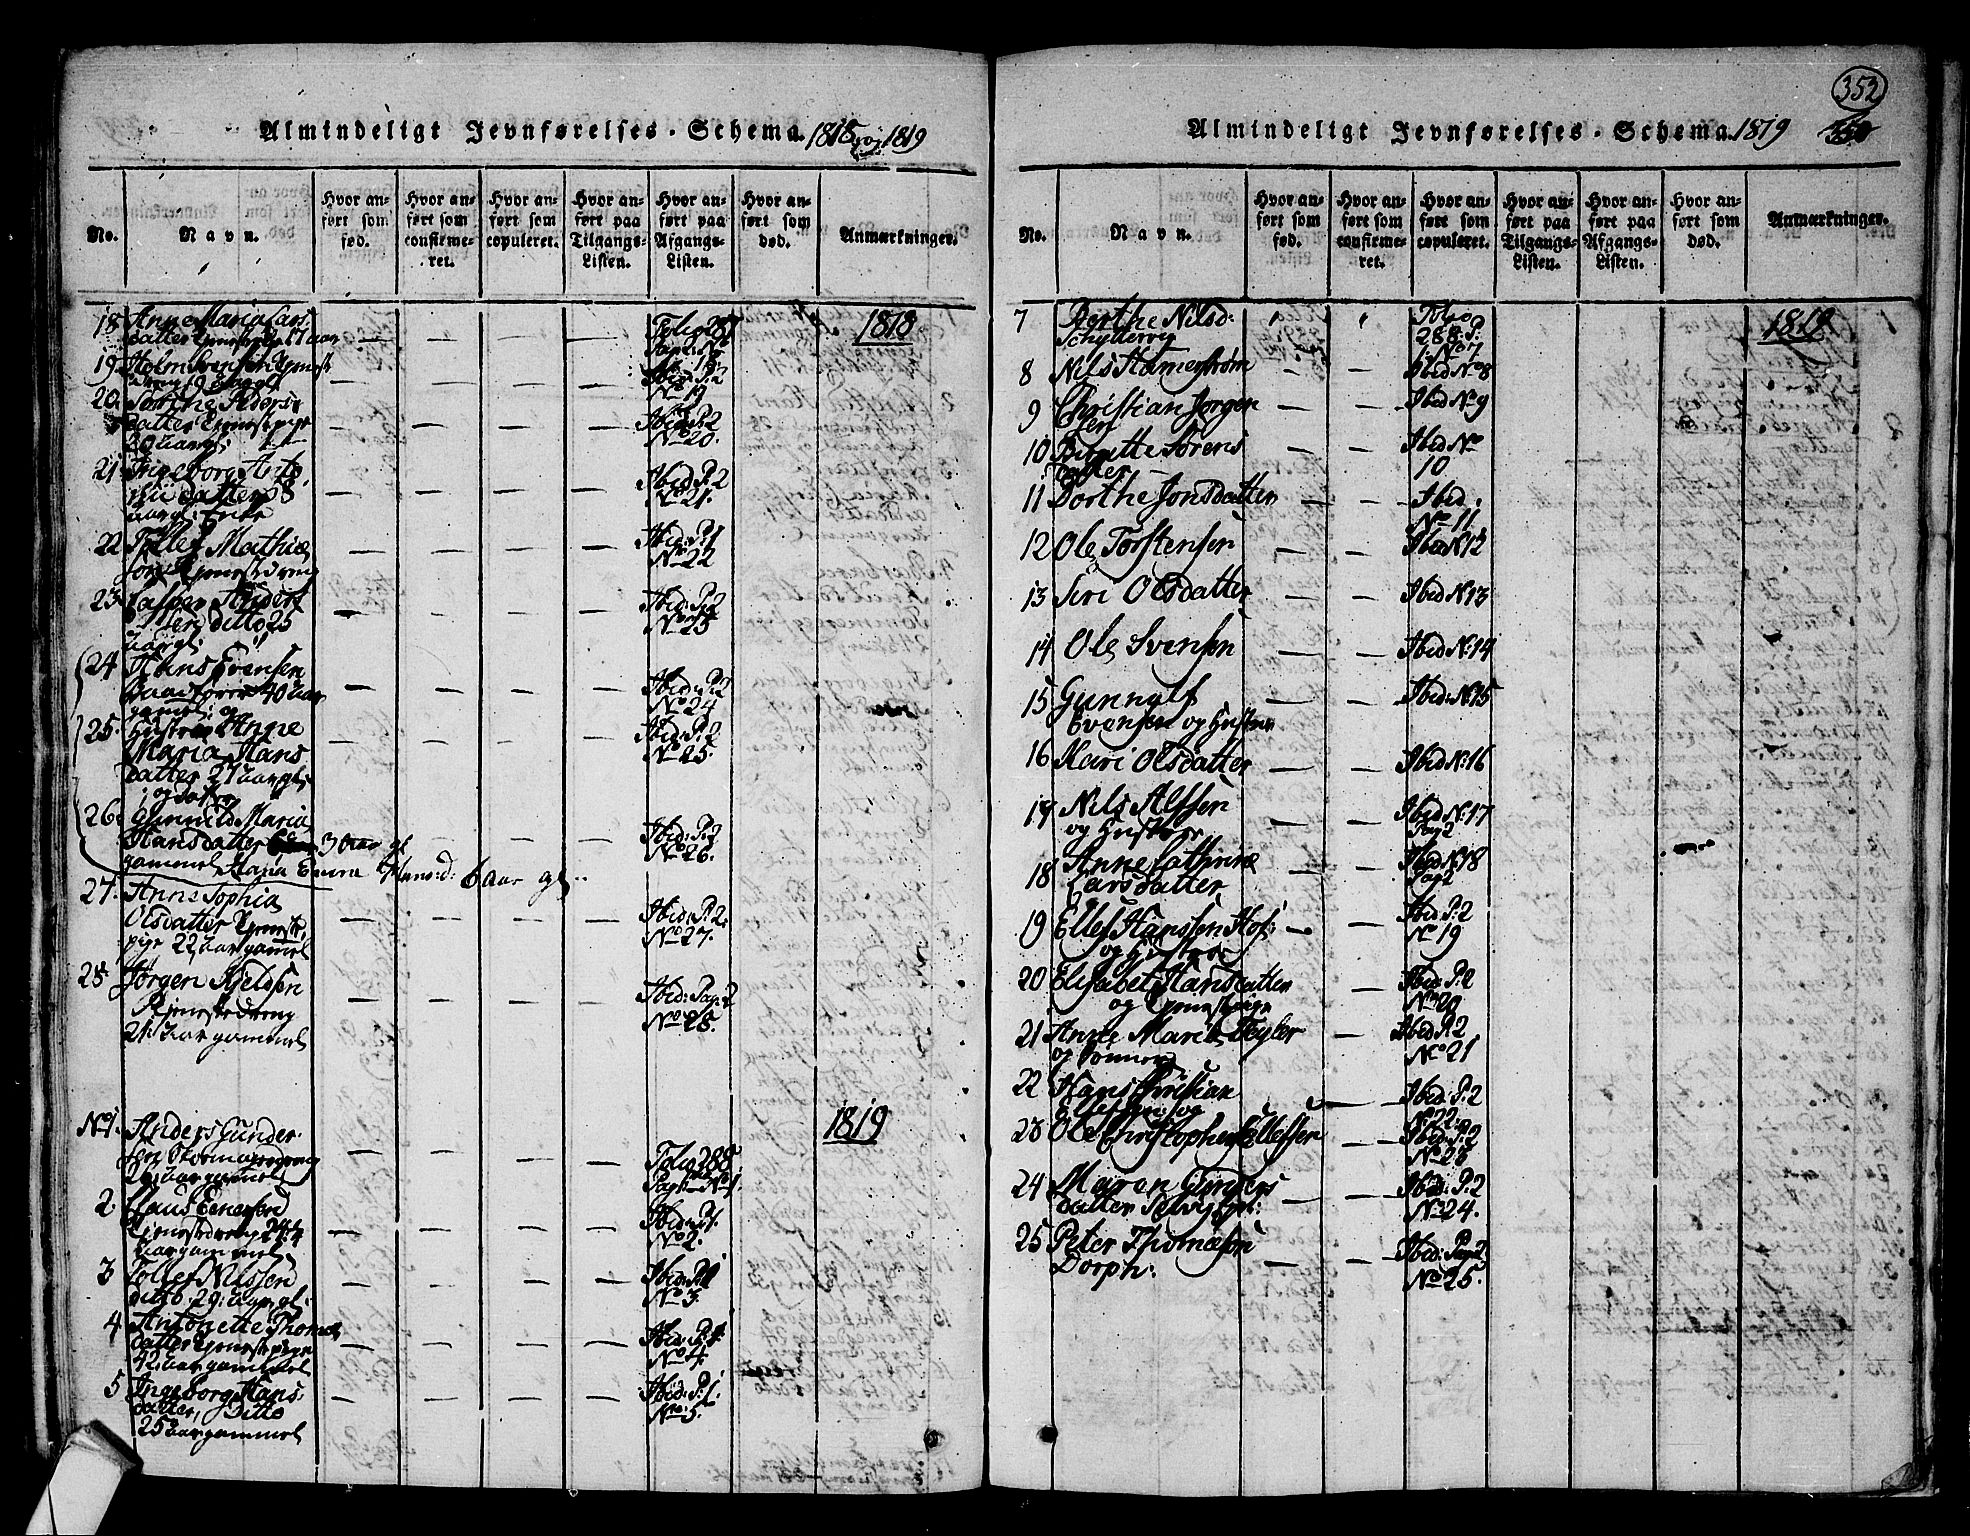 Almindeligt Jevnførelses-Schema 1818 og 1819
No.
Navn.
Hvor anført som fød.
Hvor anført som confirmeret.
Hvor anført som copuleret.
Hvor anført paa Tilgangs-Listen.
Hvor anført paa Afgangs-Listen.
Hvor anført som død.
Anmærkninger.
18 Anne Maria Lars
datter Tjenestepige 17 aar
Folio 287
Pag: 2. No
18.
1818
19
Ibid: P: 2
No 19
20. Dorthe Peders
datter Tjenestepige
20 aar gl:
Ibid: P: 2
No 20.
21. Ingeborg
datter 58
aar gl: Enke
Ibid: P: 2
No 21.
22 Tollef Mathiæ
sen Tjenestedreng
Ibid: P: 2
No 22
23. Casper Anders
sen ditto 25
aar gl:
Ibid: P: 2
No 23
24. Hans Evensen
40 aar
gammel; og
Ibid: P: 2
No 24
25. Hustrue Anne
Maria Hans
datter 27 aar gl:
; og Datter
Ibid: P: 2
No 25.
26. Gunnild Maria
Hansdatter 3 aar gl
gammel Maria Hans:d: 6 aar gl:
Ibid: P: 2
No 26.
27. Anne Sophia
Olsdatter Tjeneste
pige 22 aar gammel
Ibid: P: 2.
No 27.
28. Jørgen Kjelsen
Tjenestedreng
21 aar gammel
Ibid: Pag: 2
No 28.
1819
No 1. Anders Gunder
sen
26 aar gammel
Folio 288
Pag: 1 No 1.
2 Claus Enersen
Tjenestedreng 24
aar gammel
Ibid: P: 1.
No 2.
3 Tollef Nilssen
ditto. 29: aar, gl:
Ibid: P: 1
No 3.
4 Antonette Thomas
datter Tjenestepige
42 aar gammel
Ibid: P: 1.
No 4.
5 Ingeborg Hans
datter, Ditto
25 aar gammel
Ibid: P: 1.
No 5.
352
Almindeligt Jevnførelses-Schema 1819
No.
Navn.
Hvor anført som fød.
Hvor anført som confirmeret.
Hvor anført som copuleret.
Hvor anført paa Tilgangs-Listen.
Hvor anført paa Afgangs-Listen.
Hvor anført som død.
Anmærkninger.
7 Dorthe Nilsd:
Folio
288. P:
1. No 7
1819
8 Nils Hamerstrøm
Ibid No 8
9 Christian Jørgen
sen
Ibid No 9
10 Birgitte Sørens
datter
Ibid No
10
11 Dorthe Jonsdatter
Ibid:
No 11.
12 Ole Torstensen
Ibid N: 12
13 Siri Olsdatter
Ibid N: 13
14 Ole Svensen
Ibid N: 14
15 Gunnulf
Evensen og Hustrue
Ibid: N: 15
16 Kari Olsdatter
Ibid N: 16
17 Nils Alfsen
og Hustrue
Ibid N: 17
Pag 2
18 Anne Cathrine
Larsdatter
Ibid N: 18
Pag 2
19 Ellef Hanssen Hof:
og Hustrue
Ibid: P: 2
No 19
20 Elisabet Hansdatter
og Tjenestepige
Ibid: P: 2
No 20
21 Anne Maria Tegler
og Sønner
Ibid P: 2
No 21
22 Hans Christian
Ellefsen og
Ibid: P: 2
No 22.
23 Ole Christopher Ellefsen
Ibid: P: 2
No 23
24 Maren Gunders
datter
Ibid: P: 2
No 24.
25 Peter Thomesen
Dorph:
Ibid: Pag 2
No 25.